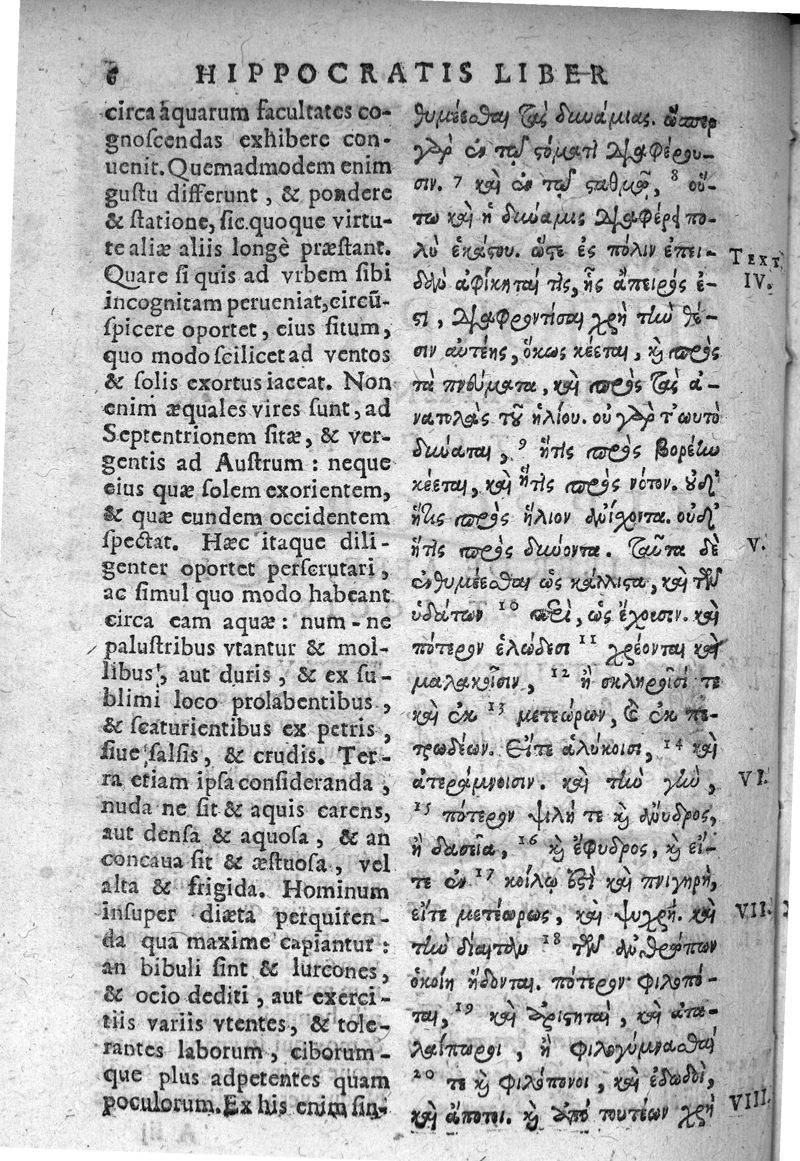 6 HIPPOCRATIS LIBER
circa aquarum facultates co-
gnoscendas exhibere con-
uenit. Quemadmodem enim
gustu differunt, & pondere
& statione, sic quoque virtu-
te aliæ aliis longè præstant.
Quare si quis ad vrbem sibi
incognitam perueniat, circũ-
spicere oportet, eius situm,
quo modo scilicet ad ventos
& solis exortus iaceat. Non
enim æquales vires sunt, ad
Septentrionem sitæ, & ver-
gentis ad Austrum: neque
eius quæ solem exorientem,
& quæ eundem occidentem
spectat. Hæc itaque dili-
genter oportet perscrutari,
ac simul quo modo habeant
circa eam aquæ: num-ne
palustribus vtantur & mol-
libus, aut duris, & ex su-
blimi loco prolabentibus,
& scaturientibus ex petris,
siue salsis, & crudis. Ter-
ra etiam ipsa consideranda,
nuda ne sit & aquis carens,
aut densa & aquosa, & an
concaua sit & æstuosa, vel
alta & frigida. Hominum
insuper diæta perquiren-
da qua maxime capiantur:
an bibuli sint & lurcones,
& ocio dediti, aut exerci-
tiis variis vtentes, & tole-
rantes laborum, ciborum-
que plus adpetentes quam
poculorum. Ex his enim sin-
θυμέεσθαι τὰς δυνάμιας. ὥσπερ
γὰρ ἐν τῷ στόματι διαφέρου-
σιν. 7 καὶ ἐν τῷ σταθμῷ, 8 οὕ-
τω καὶ ἡ δύναμις διαφέρει πο-
λὺ ἑκάστου. ὥστε ἐς πόλιν ἐπει-
δὰν ἀφίκηταί τις, ἧς ἄπειρός ἐ-
στι, διαφροντίσαι χρὴ τὴν θέ-
σιν αὐτέης, ὅκως κέεται, καὶ πρὸς
τὰ πνεύματα, καὶ πρὸς τὰς ἀ-
νατολὰς τοῦ ἡλίου. οὐ γὰρ τωυτὸ
δύναται, 9 ἥτις πρὸς βορέην
κέεται, καὶ ἥτις πρὸς νότον. οὐδ'
ἥτις πρὸς ἥλιον ἀνίσχοντα. οὐδ'
ἥτις πρὸς δύνοντα. Ταῦτα δὲ
ἐνθυμέεσθαι ὡς κάλλιστα, καὶ τῶν
ὑδάτων 10 πέρι, ὡς ἔχουσιν. καὶ
πότερον ἑλώδεσι 11 χρέονται καὶ
μαλακοῖσιν, 12 ἢ σκληροῖσί τε
καὶ ἐκ 13 μετεώρων, καὶ ἐκ πε-
τρωδέων. Εἴτε ἁλύκοισι, 14 καὶ
ἀτεράμνοισιν. καὶ τὴν γῆν,
15 πότερον ψιλή τε καὶ ἄνυδρος,
ἢ δασεῖα, 16 καὶ ἔφυδρος, καὶ εἴ-
τε ἐν 17 κοίλῳ ἐστὶ καὶ πνιγηρή,
εἴτε μετέωρως, καὶ ψυχρή. καὶ
τὴν δίαιταν 18 τῶν ἀνθρώπων
ὁκοίῃ ἥδονται. πότερον φιλοπό-
ται, 19 καὶ ἀριστηταί, καὶ ἀτα-
λαίπωροι, ἢ φιλογυμνασταί
20 τε καὶ φιλόπονοι, καὶ ἐδωδοί,
καὶ ἄποτοι. καὶ ἀπὸ τουτέων χρὴ
TEXT
IV.
V.
VI.
VII.
VIII.